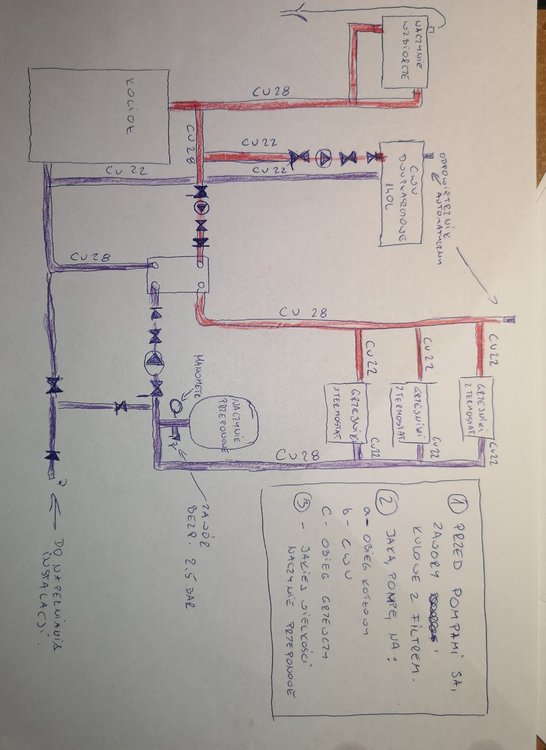 NACZYNIE
WZBIORCZE
KOCIOŁ
CU 28
CU 28
CU 22
CU 22
CU 22
CWU
DWUPŁASZCZOWE
140L
ODPOWIETRZNIK
AUTOMATYCZNY
CU 28
CU 28
CU22
CU22
CU22
GRZEJNIKI
Z TERMOSTAT
GRZEJNIKI
Z TERMOSTAT
GRZEJNIKI
Z TERMOSTAT
CU22
CU22
CU22
CU28
MANOMETR
NACZYNIE
PRZEPONOWE
ZAWÓR
BEZP. 2,5 BAR
?
DO NAPEŁNIANIA
INSTALACJI.
① PRZED POMPAMI SĄ,
ZAWORY
KULOWE Z FILTREM.
② JAKĄ, POMPĘ, NA:
a- OBIEG KOTŁOWY
b- CWU
C- OBIEG GRZEWCZY
③ - JAKIEJ WIELKOŚCI
NACZYNIE PRZEPONOWE